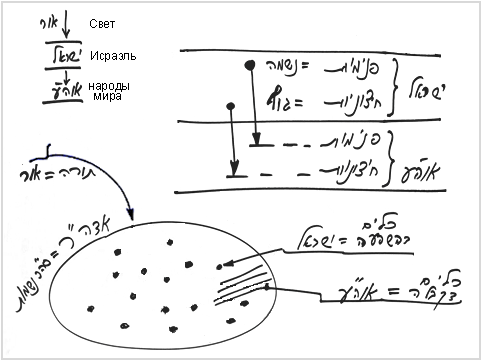 אור Свет
ישראל Исраэль
אוה"ע народы
мира
פנימיות = נשמה
חיצוניות = גוף
ישראל
פנימיות
חיצוניות
אוה"ע
תורה = אור
אדה"ר = סה"כ נשמות
כלים
דהשפעה = ישראל
כלים
דקבלה = אוה"ע